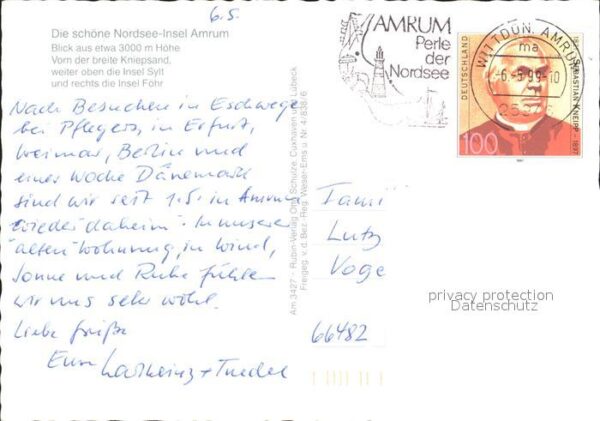 6.5.
Die schöne Nordsee-Insel Amrum
Blick aus etwa 3000 m Höhe
Vorn der breite Kniepsand,
weiter oben die Insel Sylt
und rechts die Insel Föhr
Nach Besuchen in Eschwege
bei Pflegers, in Erfurt,
Weimar, Berlin und
einer Woche Dänemark
sind wir seit 1.5. in Amrum
wieder daheim. In unserer
"alten" Wohnung, in Wind,
Sonne und Ruhe fühlen
wir uns sehr wohl.
Liebe Grüße
Eure Karlheinz + Trudel
Am 3427 - Rubin-Verlag Otto Schulze, Cuxhaven und Lübeck
Freigeg. v. d. Bez. Reg. Weser-Ems u. Nr. 4/838/6
AMRUM
Perle
der
Nordsee
WITTDÜN, AMRUM
ma
-6.-5.99-10
DEUTSCHLAND
SEBASTIAN KNEIPP
100
1997
Fami
Lutz
Voge
66482
privacy protection
Datenschutz